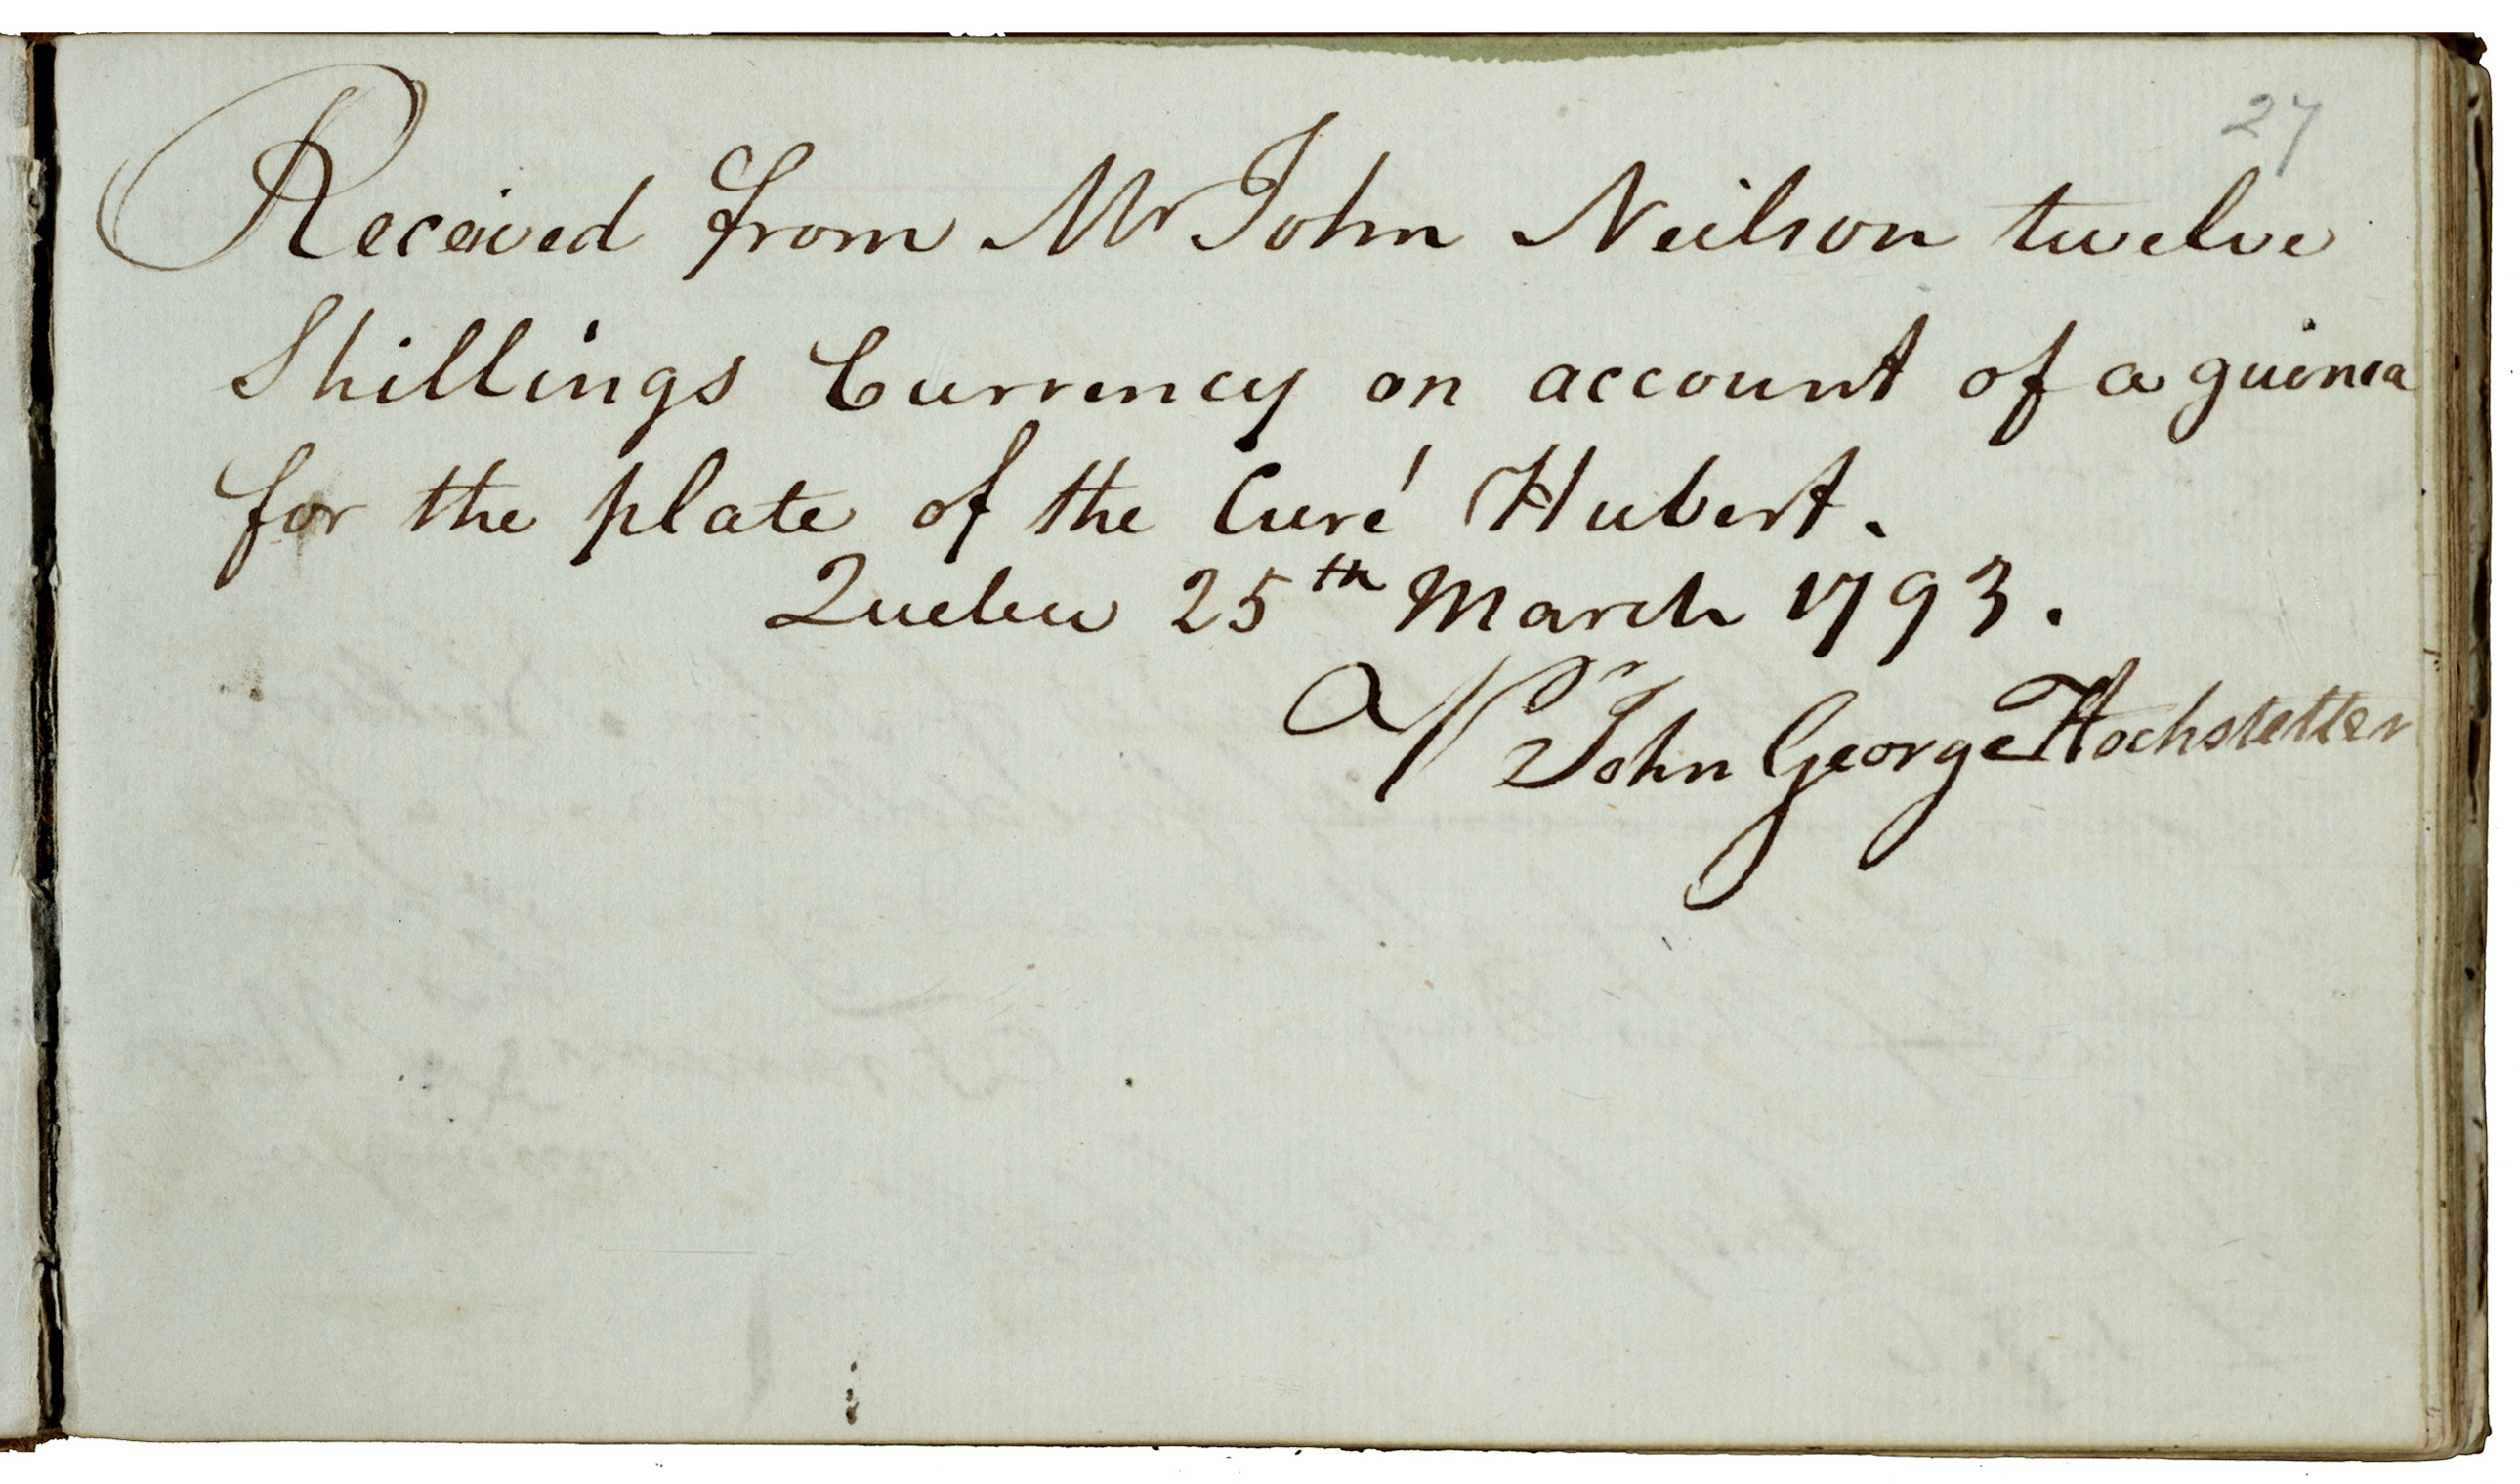 27
Received from Mr John Neilson twelve
Shillings Currency on account of a guinea
for the plate of the Curé Hubert.
Quebec 25th March 1793.
John George Hochstetter